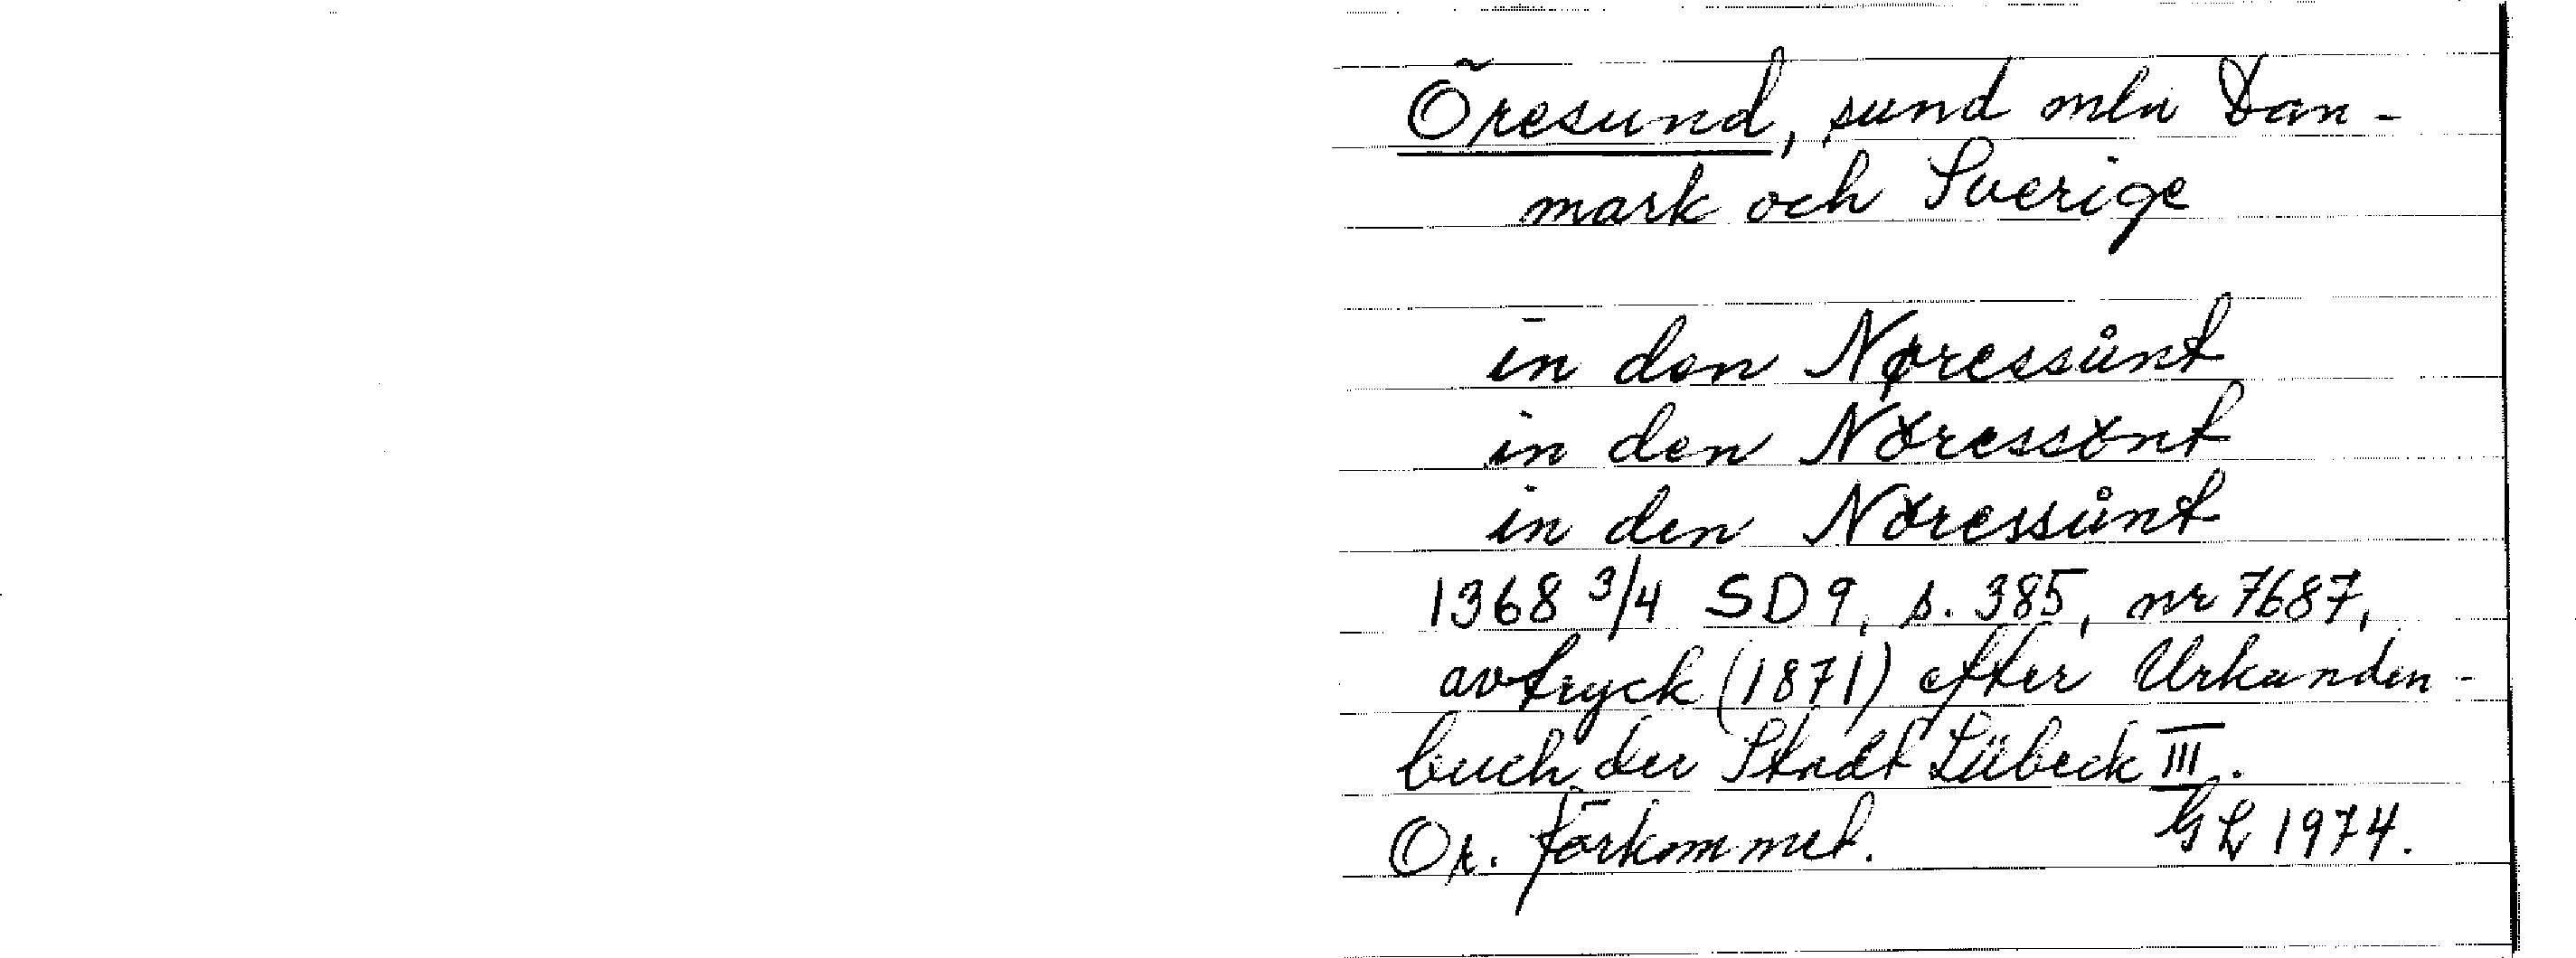 Öresund, sund mln Dan-
mark och Sverige
in den Nøressůnt
in den Nöressönt
in den Nöressůnt
1368 3/4 SD 9, s. 385, nr 7687,
avtryck (1871) efter Urkunden-
buch der Stadt Lübeck III.
Or. förkommet. GL 1974.